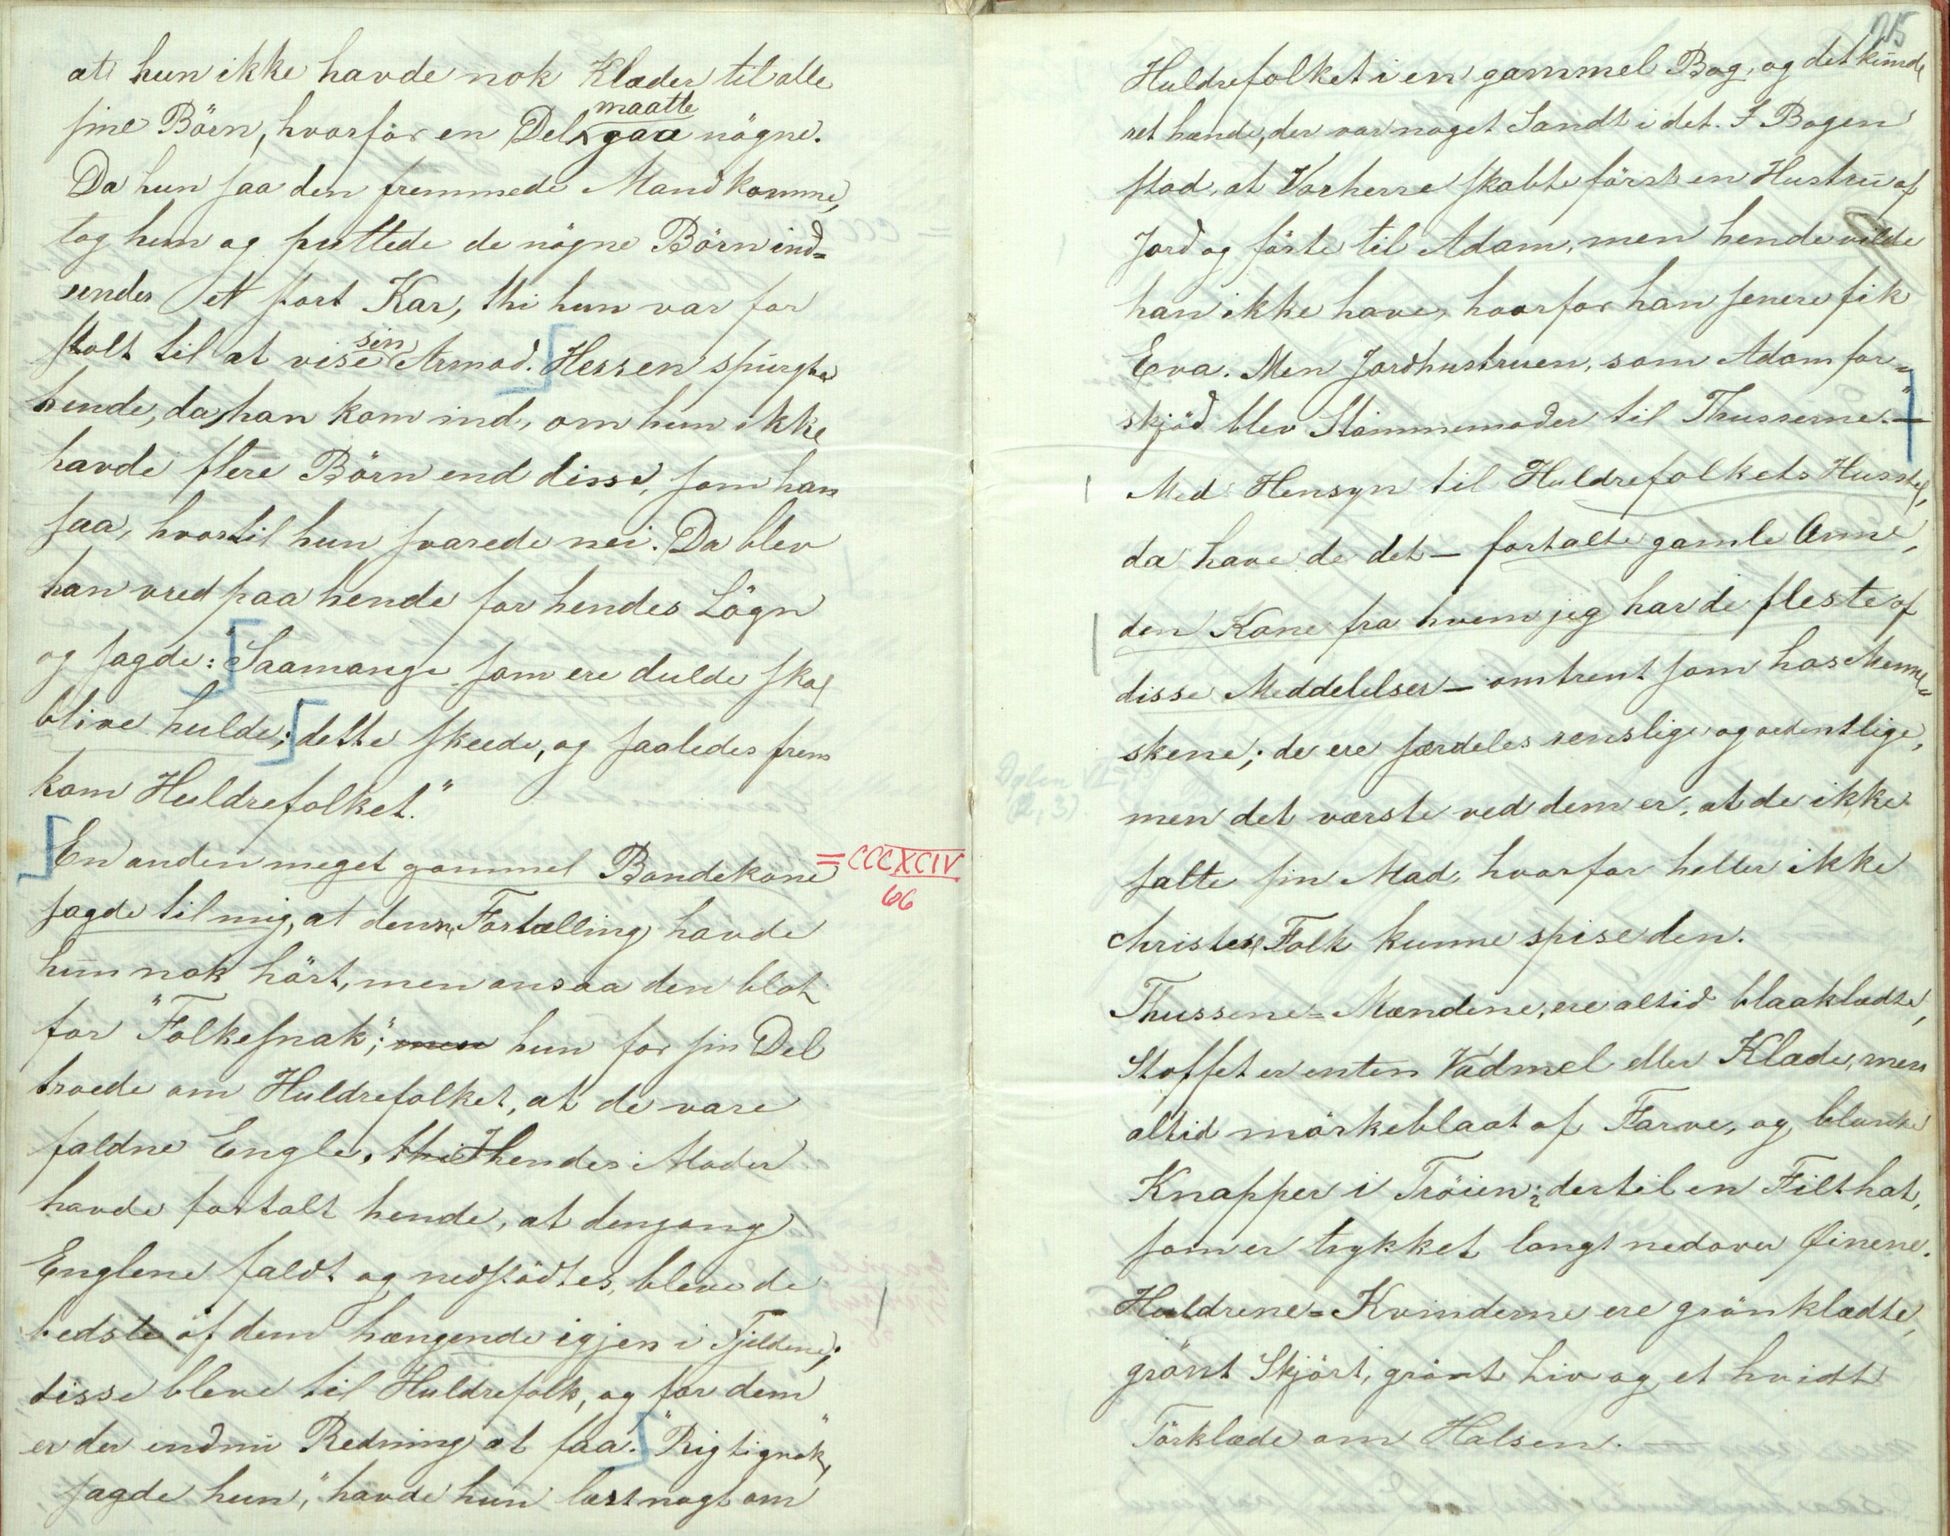 at hun ikke havde nok Klæder til alle
sine Börn, hvorfor en Del maatte gaa nögne.
Da hun saa den fremmede Mand komme,
tog hun og puttede de nögne Börn ind=
under et stort Kar, thi hun var for
stolt til at vise sin Armod. Hessen spurgte
hende, da han kom ind, om hun ikke
havde flere Börn end disse, som han
saa, hvortil hun svarede nei. Da blev
han vred paa hende for hendes Lögn
og sagde: "Saamange som ere dulde skal
blive hulde; dette skeede, og saaledes frem
kom Huldrefolket."
En anden meget gammel Bondekone
= CCCXCIV
66
sagde til mig, at denne Fortælling havde
hun nok hört, men ansaa den blot
for "Folkesnak"; men hun for sin Del
troede om Huldrefolket, at de vare
faldne Engle, thi hendes Moder
havde fortalt hende, at dengang
Englene faldt og nedstödtes, bleve de
bedste af dem hængende igjen i Fjeldene;
disse bleve til Huldrefolk, og for dem
er der endnu Redning at faa. "Rigtignok",
sagde hun, "havde hun læst nogt om
215
Huldrefolket i en gammel Bog, og det kunde
ret hænde, der var noget Sandt i det. I Bogen
stod, at Vorherre skabte först en Hustru af
Jord og förte til Adam, men hende vilde
han ikke have, hvorfor han senere fik
Eva. Men Jordhustruen, som Adam for=
skjöd blev Stammemoder til Thusserne." —
Med Hensyn til Huldrefolkets Husstel,
da have de det — fortalte gamle Anne,
den Kone fra hvem jeg har de fleste af
disse Meddelelser — omtrent som hos Menne=
skene; de ere særdeles renslige og ordentlige,
men det værste ved dem er, at de ikke
salte sin Mad, hvorfor heller ikke
christen Folk kunne spise den.
Thussene = Mændene, ere altid blaaklædte,
Stoffet er enten Vadmel eller Klæde, men
altid mörkeblaat af Farve, og blanke
Knapper i Tröien; dertil en Filthat,
som er trykket langt nedover Øinene.
Huldrene = Kvinderne ere grönklædte,
grönt Skjört, grönt Liv og et hvidt
Törklæde om Halsen. —